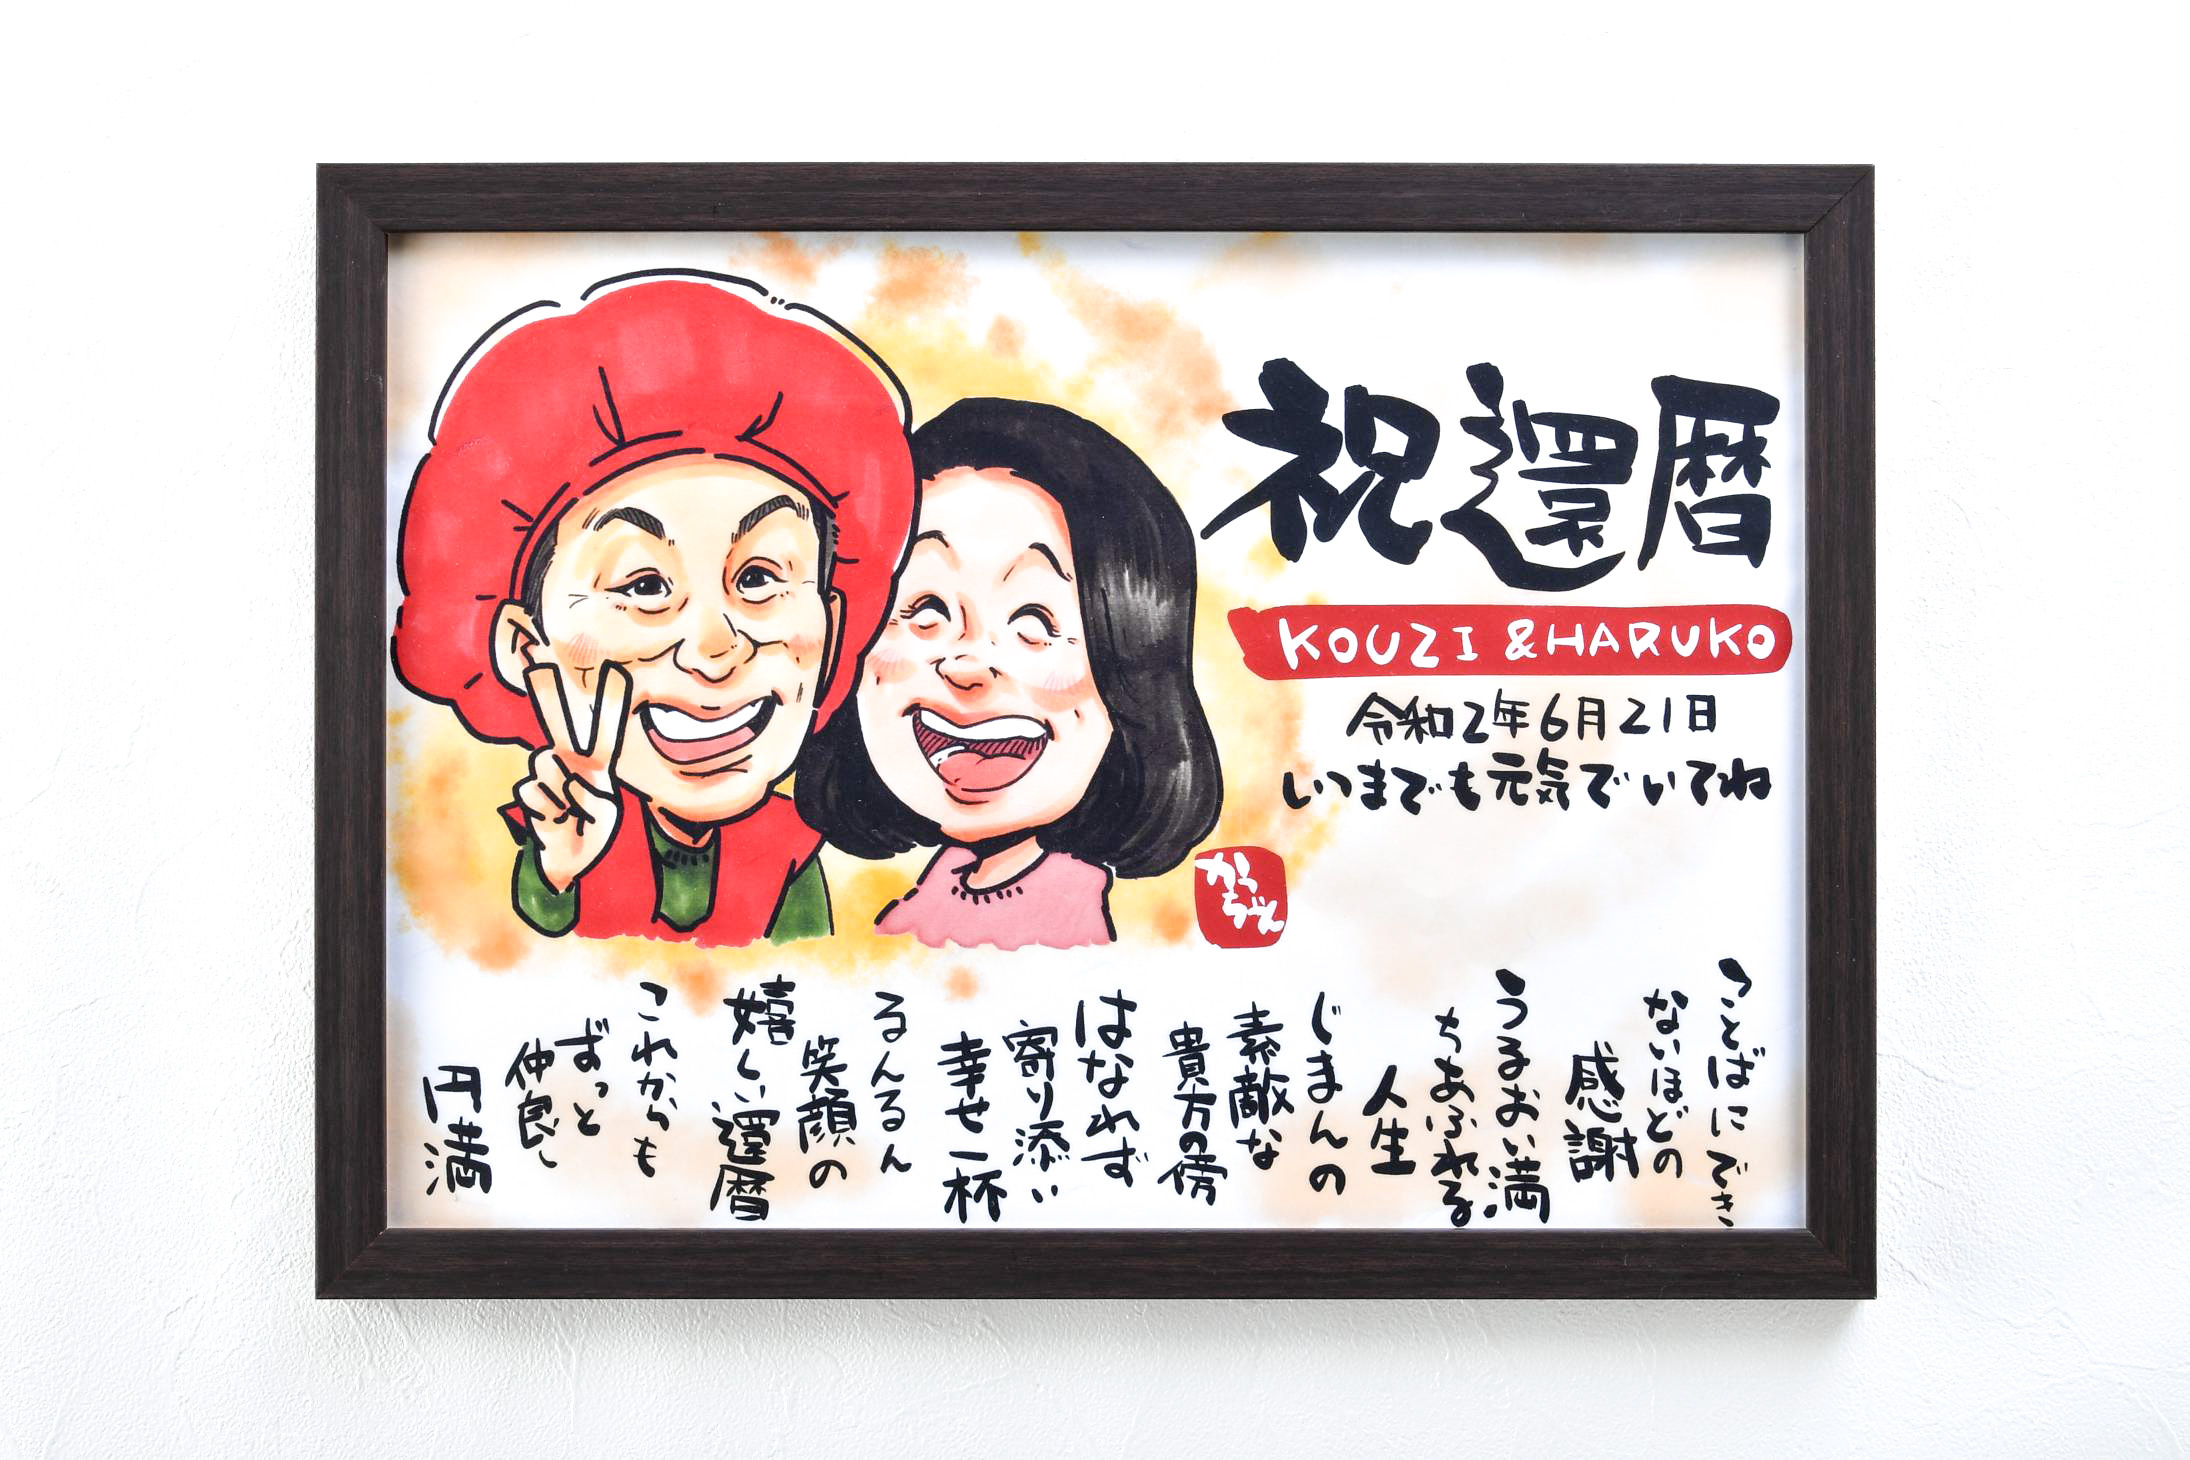 祝還暦
KOUZI & HARUKO
令和2年6月21日
いつまでも元気でいてね
かっちゃん
ことばにでき
ないほどの
感謝
うるおい満
ちあふれる
人生
じまんの
素敵な
貴方の傍
はなれず
寄り添い
幸せ一杯
るんるん
笑顔の
嬉しい還暦
これからも
ずっと
仲良し
円満